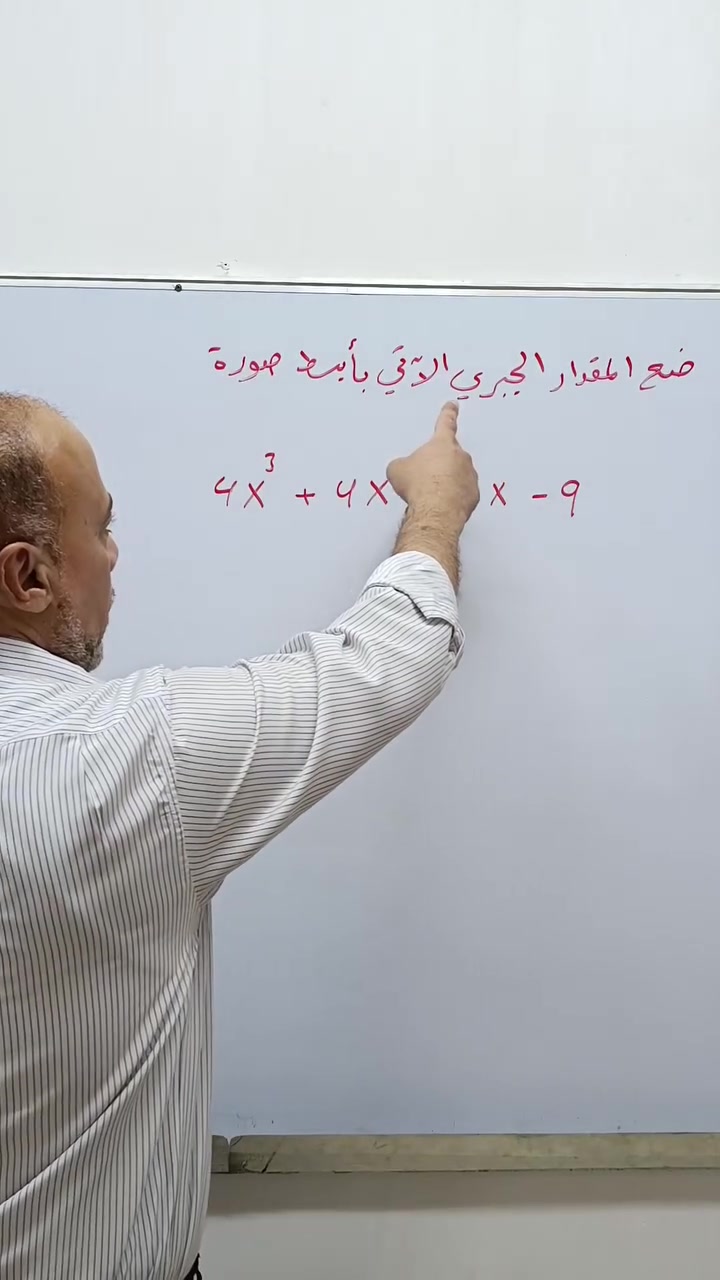 ضع المقدار الجبري الآتي بأبسط صورة
4x³ + 4x x - 9